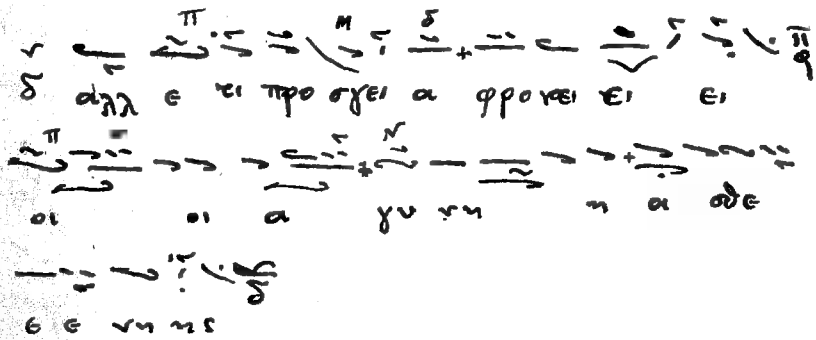 ἀλλ ε τι προ σγει α φρο νει ει ει
οι οι α γυ νη η α σθε
ε ε νη ης